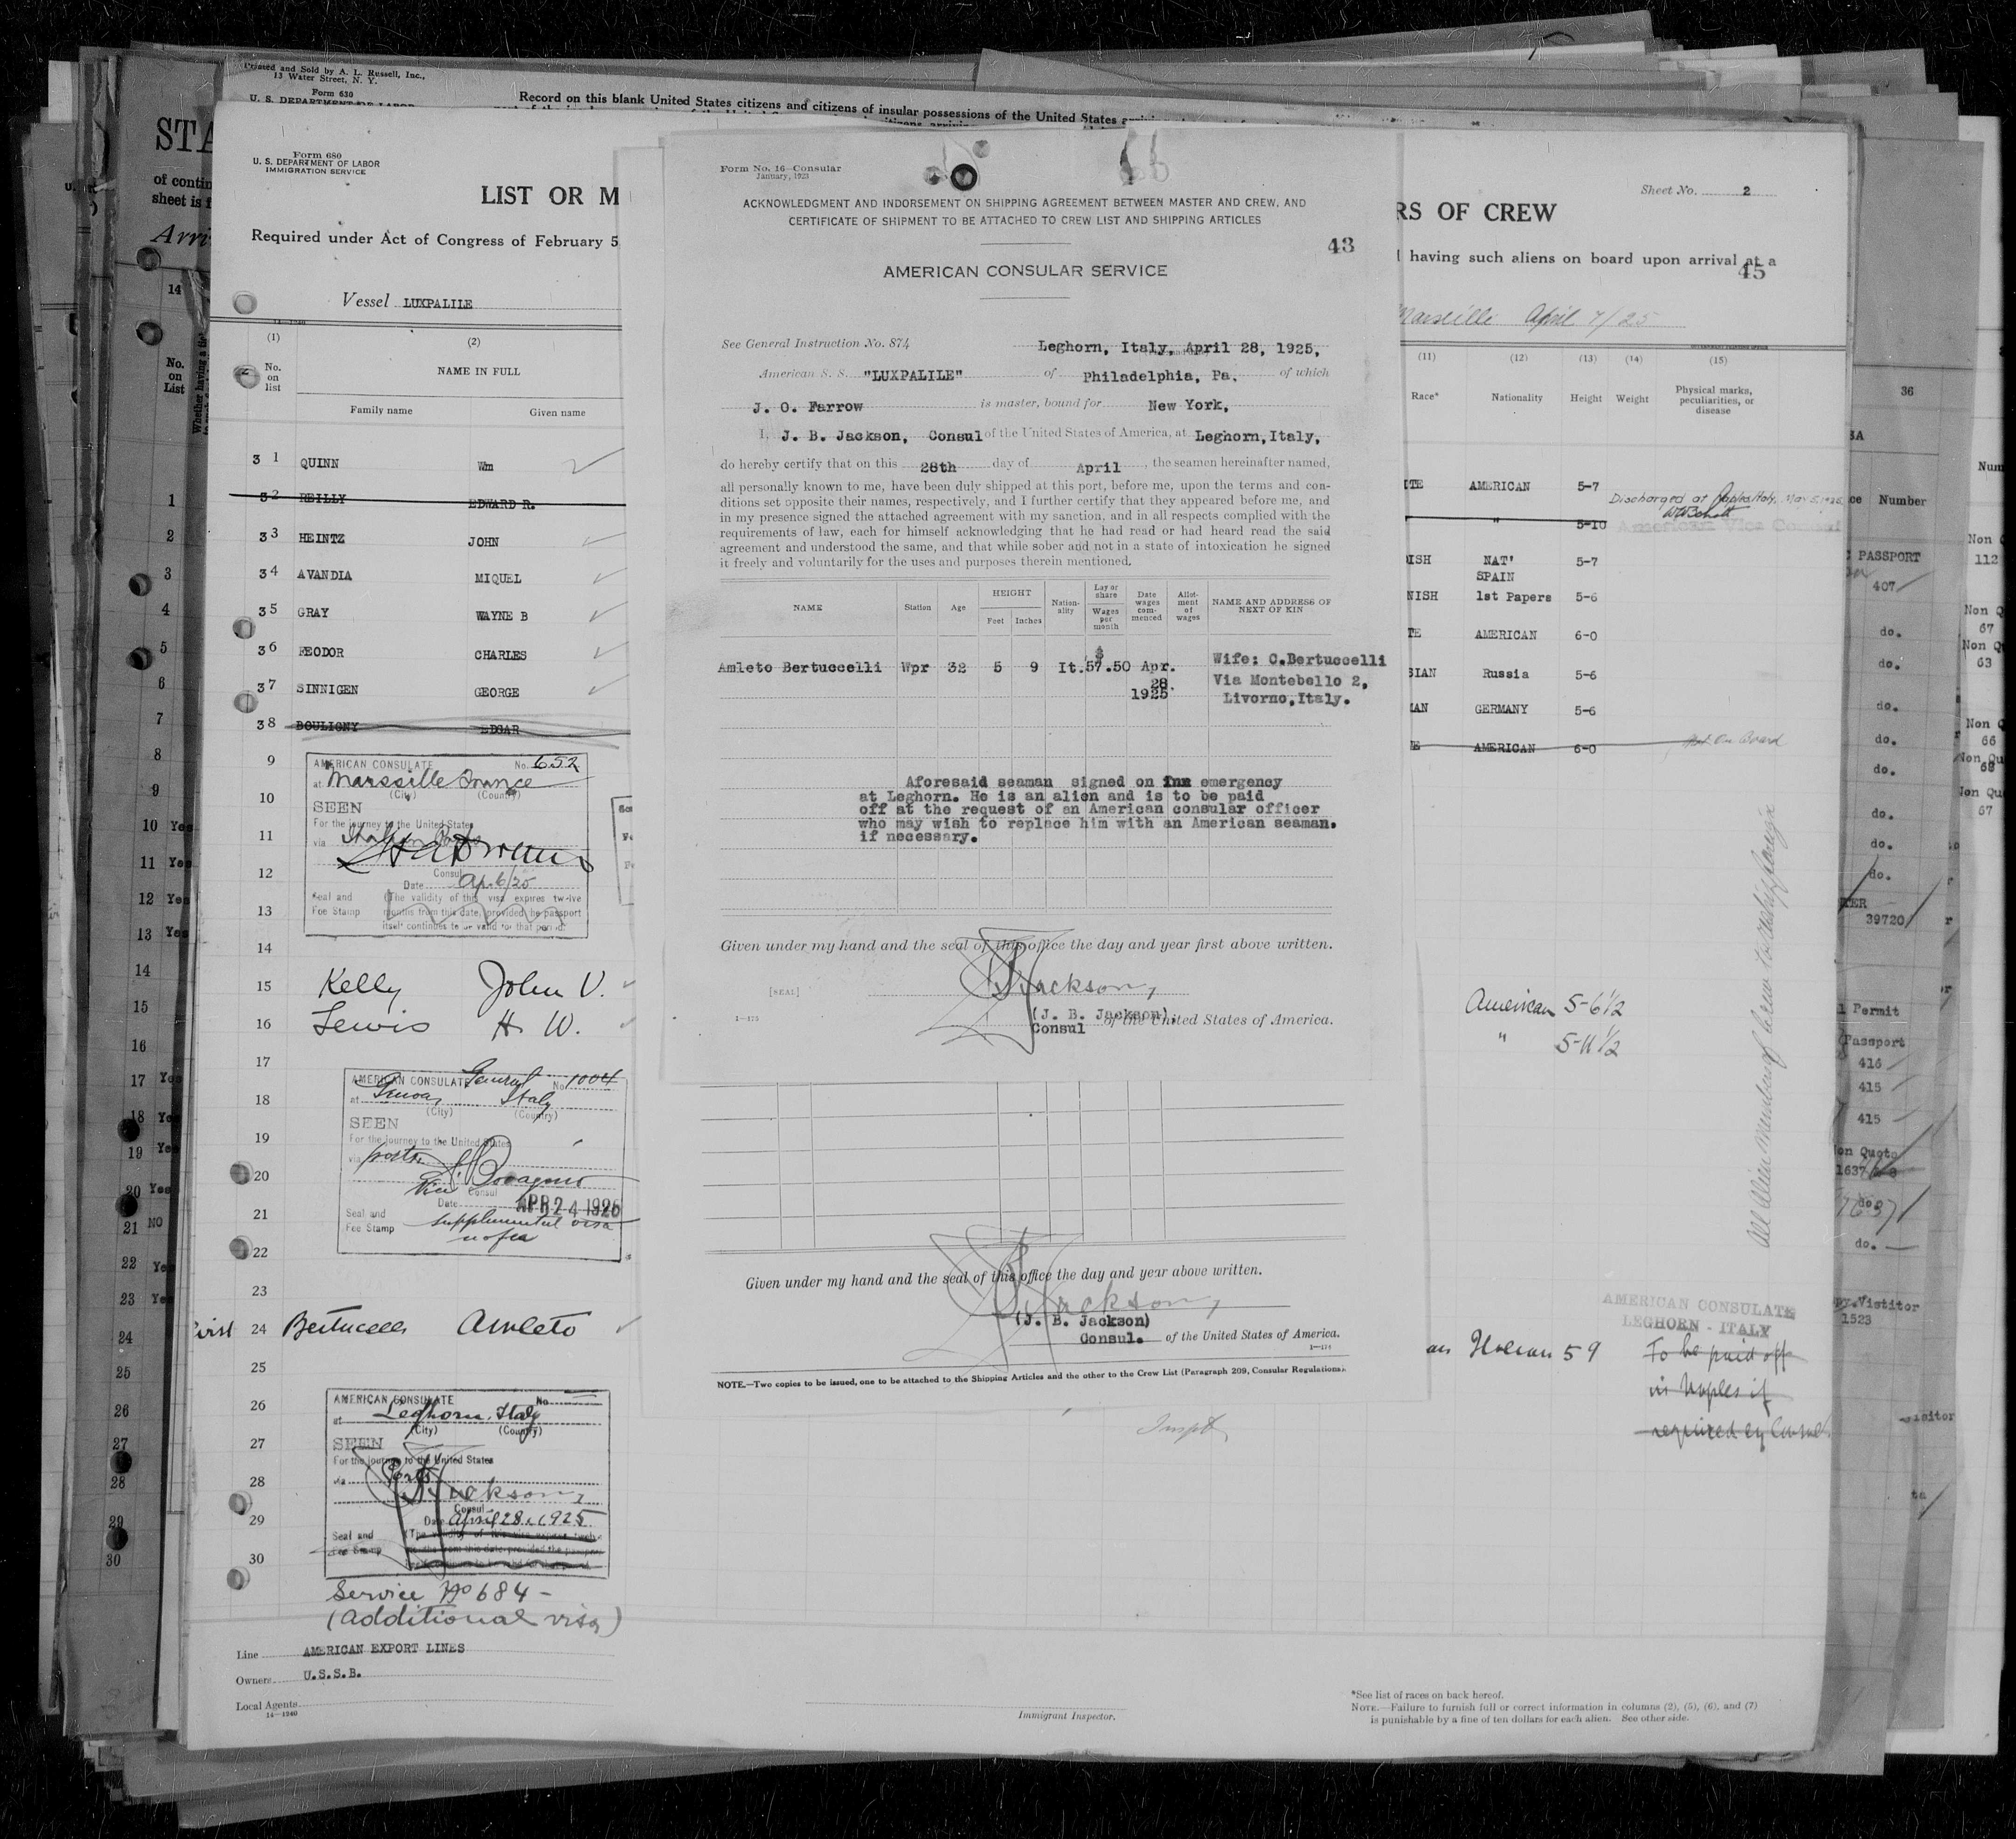 Printed and Sold by A. L. Russell, Inc.,
13 Water Street, N. Y.
Form 630
U. S. DEPARTMENT OF LABOR
Record on this blank United States citizens and citizens of insular possessions of the United States
STA
of contin
sheet is f
Arri
Form 680
U. S. DEPARTMENT OF LABOR
IMMIGRATION SERVICE
LIST OR M
Required under Act of Congress of February 5
Vessel LUXPALILE
(1) (2)
No. on list
NAME IN FULL
Family name Given name
3 1 QUINN Wm
3 2 REILLY EDWARD R.
3 3 HEINTZ JOHN
3 4 AVANDIA MIQUEL
3 5 GRAY WAYNE B
3 6 FEODOR CHARLES
3 7 SINNIGEN GEORGE
3 8 BOULIGNY EDGAR
9
10
11
12
13
14
AMERICAN CONSULATE No. 652
at Marseille France
(City) (Country)
SEEN
For the journey to the United States
via
Consul
Date Ap. 6/25
Seal and
Fee Stamp
(The validity of this visa expires twelve
months from this date, provided the passport
itself continues to be valid for that period.
15 Kelly John V.
16 Lewis H. W.
17
18
19
20
21
22
23
AMERICAN CONSULATE General No. 1004
at Genoa, Italy
(City) (Country)
SEEN
For the journey to the United States
via ports
Vice Consul
Date APR 24 1925
Seal and
Fee Stamp
supplemental visa
no fee
24 Bertuccelli Amleto
25
26
27
28
29
30
AMERICAN CONSULATE No.
at Leghorn, Italy
(City) (Country)
SEEN
For the journey to the United States
via Ports
Jackson,
Consul
Date April 28, 1925.
Seal and
Fee Stamp
Service No 684 -
(Additional visa)
Line AMERICAN EXPORT LINES
Owners U.S.S.B.
Local Agents
14-1240
Form No. 16-Consular
January, 1923
ACKNOWLEDGMENT AND INDORSEMENT ON SHIPPING AGREEMENT BETWEEN MASTER AND CREW, AND
CERTIFICATE OF SHIPMENT TO BE ATTACHED TO CREW LIST AND SHIPPING ARTICLES
43
AMERICAN CONSULAR SERVICE
See General Instruction No. 874 Leghorn, Italy, April 28, 1925,
American S. S. "LUXPALILE" of Philadelphia, Pa. of which
J. O. Farrow is master, bound for New York,
I, J. B. Jackson, Consul of the United States of America, at Leghorn, Italy,
do hereby certify that on this 28th day of April, the seamen hereinafter named,
all personally known to me, have been duly shipped at this port, before me, upon the terms and con-
ditions set opposite their names, respectively, and I further certify that they appeared before me, and
in my presence signed the attached agreement with my sanction, and in all respects complied with the
requirements of law, each for himself acknowledging that he had read or had heard read the said
agreement and understood the same, and that while sober and not in a state of intoxication he signed
it freely and voluntarily for the uses and purposes therein mentioned.
NAME Station Age HEIGHT Feet Inches Nation-ality Lay or share Wages per month Date wages com-menced Allot-ment of wages NAME AND ADDRESS OF NEXT OF KIN
Amleto Bertuccelli Wpr 32 5 9 It. $57.50 Apr. 28. 1925 Wife: C.Bertuccelli
Via Montebello 2,
Livorno, Italy.
Aforesaid seaman signed on emergency
at Leghorn. He is an alien and is to be paid
off at the request of an American consular officer
who may wish to replace him with an American seaman.
if necessary.
Given under my hand and the seal of this office the day and year first above written.
[SEAL] Jackson,
(J. B. Jackson),
1-173
Consul of the United States of America.
Given under my hand and the seal of this office the day and year above written.
Jackson,
(J. B. Jackson)
Consul. of the United States of America.
1-174
NOTE.—Two copies to be issued, one to be attached to the Shipping Articles and the other to the Crew List (Paragraph 209, Consular Regulations).
Immigrant Inspector.
Sheet No. 2
RS OF CREW
having such aliens on board upon arrival at a
45
Marseille April 7/25
(11) (12) (13) (14) (15)
Race* Nationality Height Weight Physical marks, peculiarities, or disease
ITE AMERICAN 5-7
Discharged at Naples Italy, May 5, 1925
" 5-10 American Vice Consul
ISH NAT' SPAIN 5-7
NISH 1st Papers 5-6
TE AMERICAN 6-0
SIAN Russia 5-6
MAN GERMANY 5-6
E AMERICAN 6-0 Not On Board
American 5-6 1/2
" 5-11 1/2
AMERICAN CONSULATE
LEGHORN - ITALY
Italian 5 9 To be paid off
in Naples if
required by Consul
*See list of races on back hereof.
NOTE.—Failure to furnish full or correct information in columns (2), (5), (6), and (7)
is punishable by a fine of ten dollars for each alien. See other side.
36
Number
PASSPORT
407
do.
do.
do.
do.
do.
do.
do.
do.
39720
Permit
Passport
416
415
415
on Quota
1637
do.
do.
Visitor
1523
Num
Non Q
112
Non Q
67
Non Q
63
Non Q
66
Non Qu
68
Non Qu
67